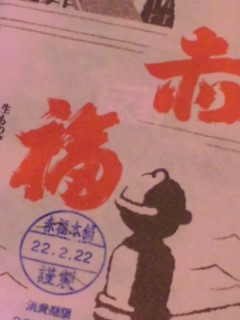 赤福
生もの
赤福本舗
22.2.22
謹製
消費期限